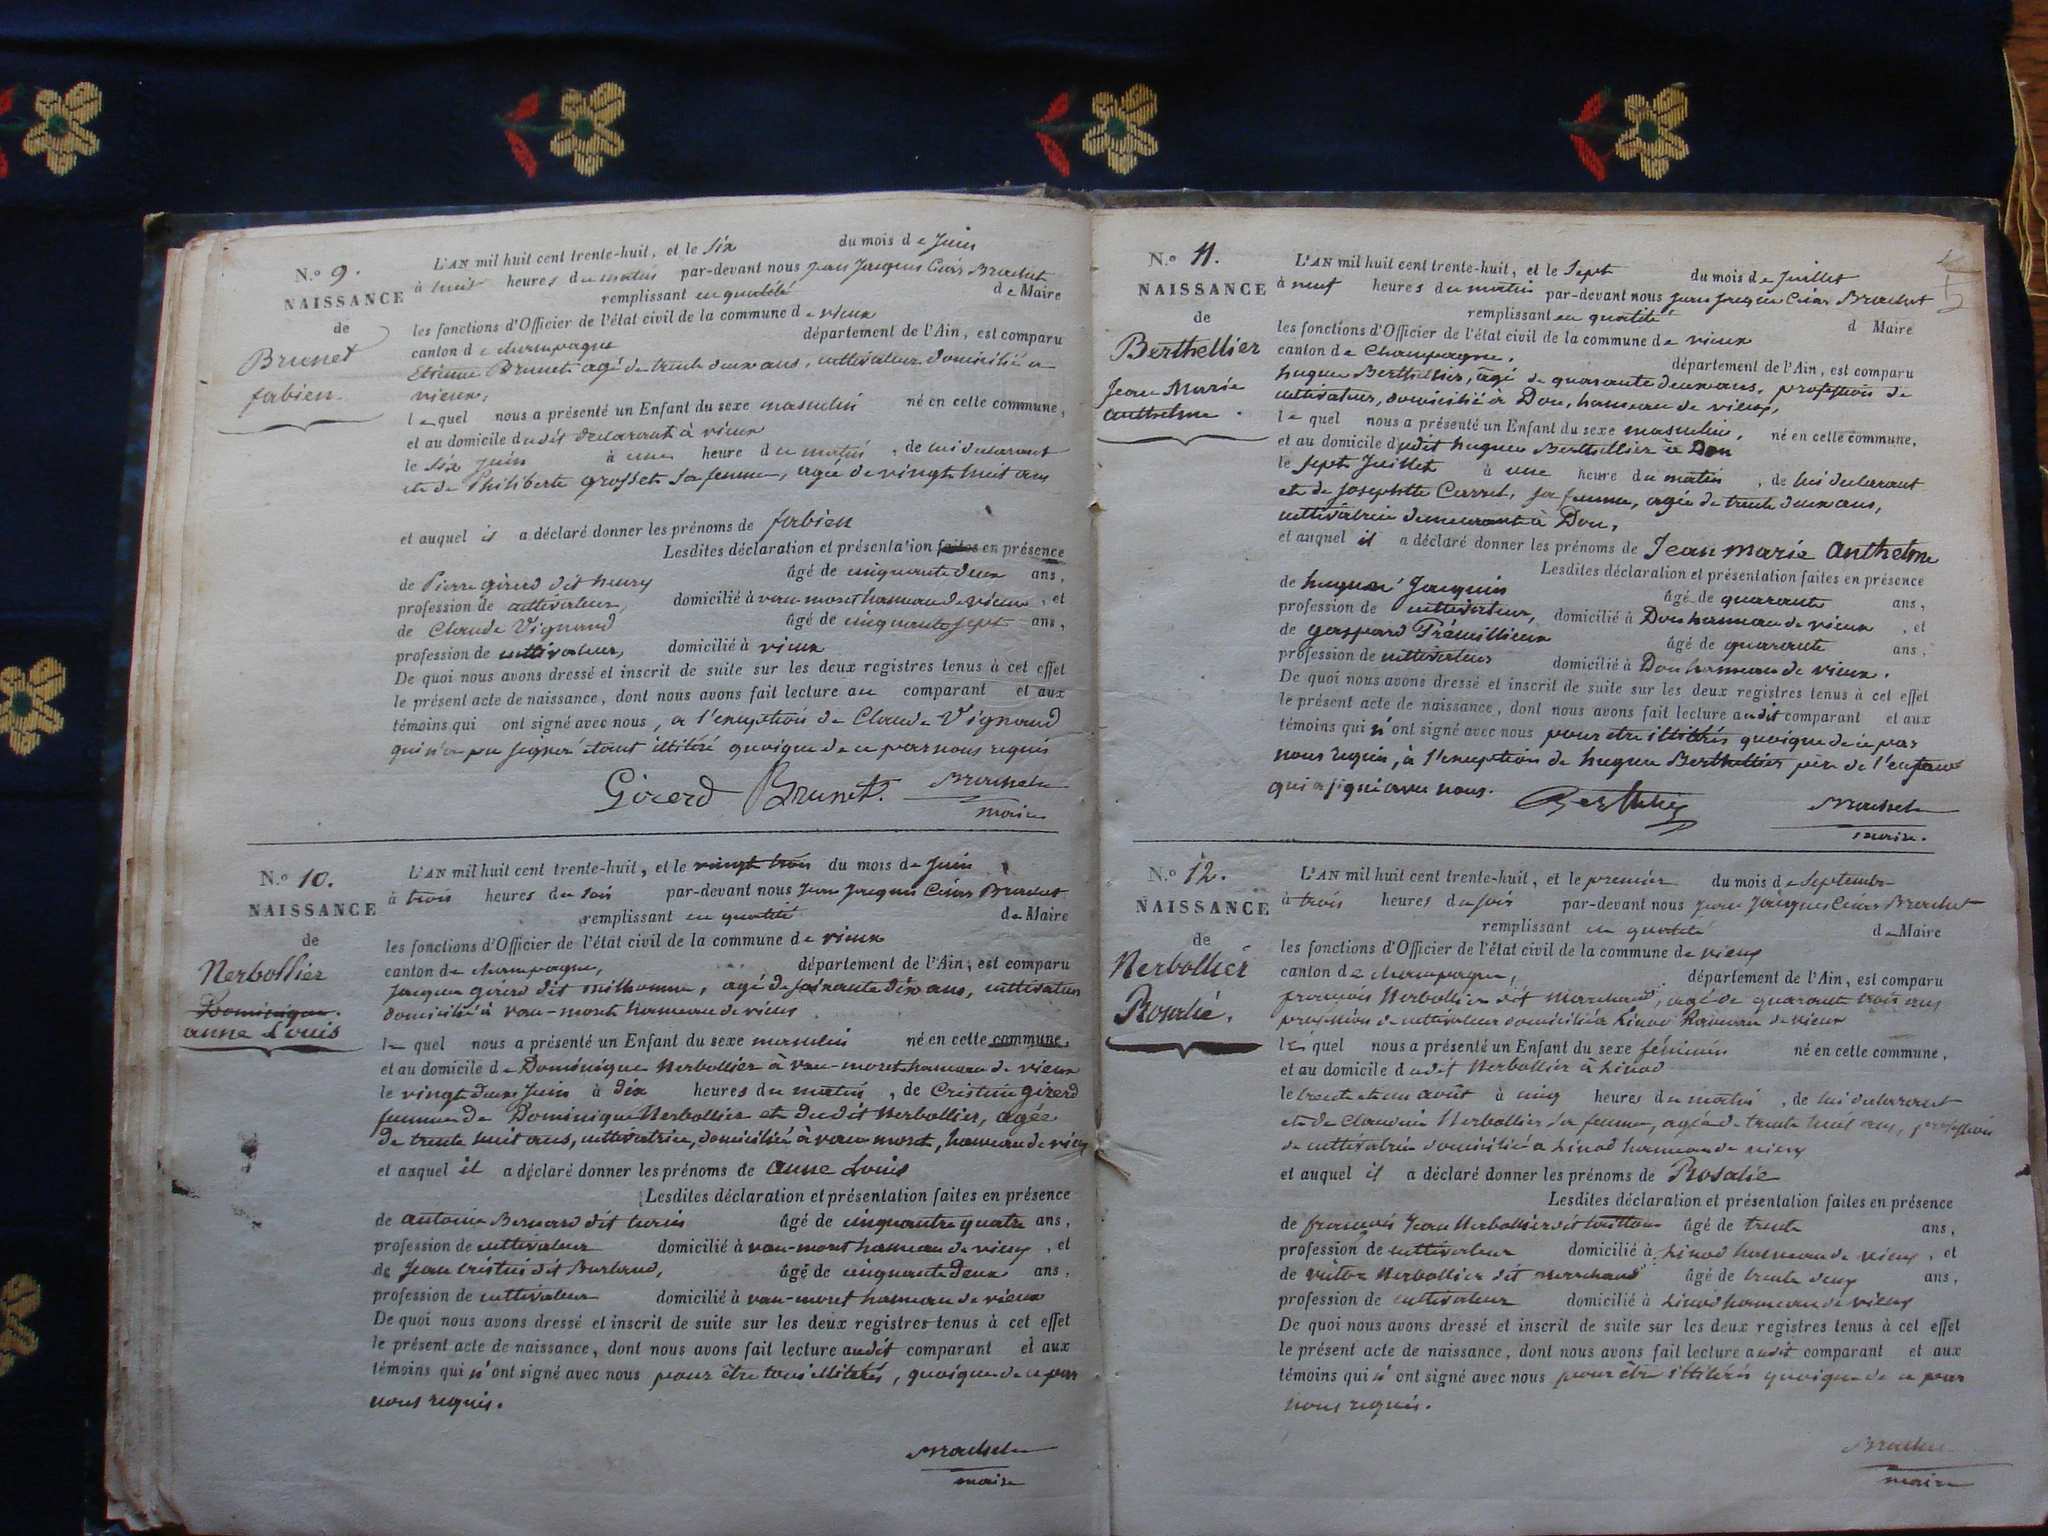 N.º 9.
NAISSANCE
de
Brunet
fabien
L'AN mil huit cent trente-huit, et le six du mois de Juin
à huit heures du matin par-devant nous Jean Jacques César Brachet
remplissant en qualité de Maire
les fonctions d'Officier de l'état civil de la commune de vieux
canton de champagne département de l'Ain, est comparu
Etienne Brunet agé de trente deux ans, cultivateur domicilié a
vieux,
lequel nous a présenté un Enfant du sexe masculin né en cette commune,
et au domicile dudit déclarant à vieux
le six juin à une heure du matin, de lui déclarant
et de Philiberte grosset sa femme, agée de vingt huit ans
et auquel il a déclaré donner les prénoms de fabien
Lesdites déclaration et présentation faites en présence
de Pierre girerd dit henry âgé de cinquante deux ans,
profession de cultivateur, domicilié à vau-mont hameau de vieux, et
de Claude Vignand âgé de cinquante sept ans,
profession de cultivateur, domicilié à vieux
De quoi nous avons dressé et inscrit de suite sur les deux registres tenus à cet effet
le présent acte de naissance, dont nous avons fait lecture au comparant et aux
témoins qui ont signé avec nous, a l'exception de Claude Vignand
qui n'a pu signer étant illitéré quoique de ce par nous requis
Girerd Brunet. Brachet
maire
N.º 10.
NAISSANCE
de
Nerbollier
Dominique.
anne Louis
L'AN mil huit cent trente-huit, et le vingt trois du mois de Juin
à trois heures du soir par-devant nous Jean Jacques César Brachet
remplissant en qualité de Maire
les fonctions d'Officier de l'état civil de la commune de vieux
canton de champagne, département de l'Ain, est comparu
Jacques girerd dit milhomme, agé de soixante dix ans, cultivateur
domicilié à vau-mont hameau de vieux
lequel nous a présenté un Enfant du sexe masculin né en cette commune,
et au domicile de Dominique Nerbollier à vau-mont hameau de vieux
le vingt deux Juin à dix heures du matin, de Cristine girerd
femme de Dominique Nerbollier et dudit Nerbollier, agée
de trente huit ans, cultivatrice, domiciliée à vau mont, hameau de vieux
et auquel il a déclaré donner les prénoms de anne Louis
Lesdites déclaration et présentation faites en présence
de antoine Bernard dit âgé de cinquante quatre ans,
profession de cultivateur domicilié à vau-mont hameau de vieux, et
de Jean cristin dit Burland, âgé de cinquante deux ans,
profession de cultivateur domicilié à vau-mont hameau de vieux
De quoi nous avons dressé et inscrit de suite sur les deux registres tenus à cet effet
le présent acte de naissance, dont nous avons fait lecture audit comparant et aux
témoins qui n'ont signé avec nous pour être tous illitérés, quoique de ce par
nous requis.
Brachet
maire
N.º 11.
NAISSANCE
de
Berthellier
Jean Marie
anthelme.
L'AN mil huit cent trente-huit, et le Sept du mois de Juillet
à neuf heures du matin par-devant nous Jean Jacques César Brachet
remplissant en qualité d Maire
les fonctions d'Officier de l'état civil de la commune de vieux
canton de Champagne, département de l'Ain, est comparu
hugues Berthellier, âgé de quarante deux ans, profession de
cultivateur, domicilié à Don, hameau de vieux,
lequel nous a présenté un Enfant du sexe masculin, né en cette commune,
et au domicile dudit hugues Berthellier à Don
le sept Juillet à une heure du matin, de lui déclarant
et de Josephte Carrel, sa femme, agée de trente deux ans,
cultivatrice demeurant à Don,
et auquel il a déclaré donner les prénoms de Jean marie anthelme
Lesdites déclaration et présentation faites en présence
de hugues Jacquin âgé de quarante ans,
profession de cultivateur, domicilié à Don hameau de vieux, et
de gaspard Prémillieux âgé de quarante ans,
profession de cultivateur domicilié à Don hameau de vieux.
De quoi nous avons dressé et inscrit de suite sur les deux registres tenus à cet effet
le présent acte de naissance, dont nous avons fait lecture audit comparant et aux
témoins qui n'ont signé avec nous pour etre illitérés quoique de ce par
nous requis, à l'exception de hugues Berthellier père de l'enfant
qui a signé avec nous. Brachet
maire.
N.º 12.
NAISSANCE
de
Nerbollier
Rosalie.
L'AN mil huit cent trente-huit, et le premier du mois de Septembre
à trois heures du soir par-devant nous Jean Jacques César Brachet
remplissant en qualité de Maire
les fonctions d'Officier de l'état civil de la commune de vieux
canton de champagne, département de l'Ain, est comparu
françois Nerbollier dit marchand, agé de quarante trois ans
profession de cultivateur domicilié a Linod hameau de vieux
lequel nous a présenté un Enfant du sexe féminin né en cette commune,
et au domicile dudit Nerbollier à Linod
le trente et un août à cinq heures du matin, de lui déclarant
et de Claudine Nerbollier sa femme, agée de trente huit ans, profession
de cultivatrice domiciliée a Linod hameau de vieux
et auquel il a déclaré donner les prénoms de Rosalie
Lesdites déclaration et présentation faites en présence
de françois Jean Nerbollier dit âgé de trente ans,
profession de cultivateur domicilié à Linod hameau de vieux, et
de victor Nerbollier dit marchand âgé de trente deux ans,
profession de cultivateur domicilié à Linod hameau de vieux
De quoi nous avons dressé et inscrit de suite sur les deux registres tenus à cet effet
le présent acte de naissance, dont nous avons fait lecture audit comparant et aux
témoins qui n'ont signé avec nous pour être illitérés quoique de ce par
nous requis.
Brachet
maire